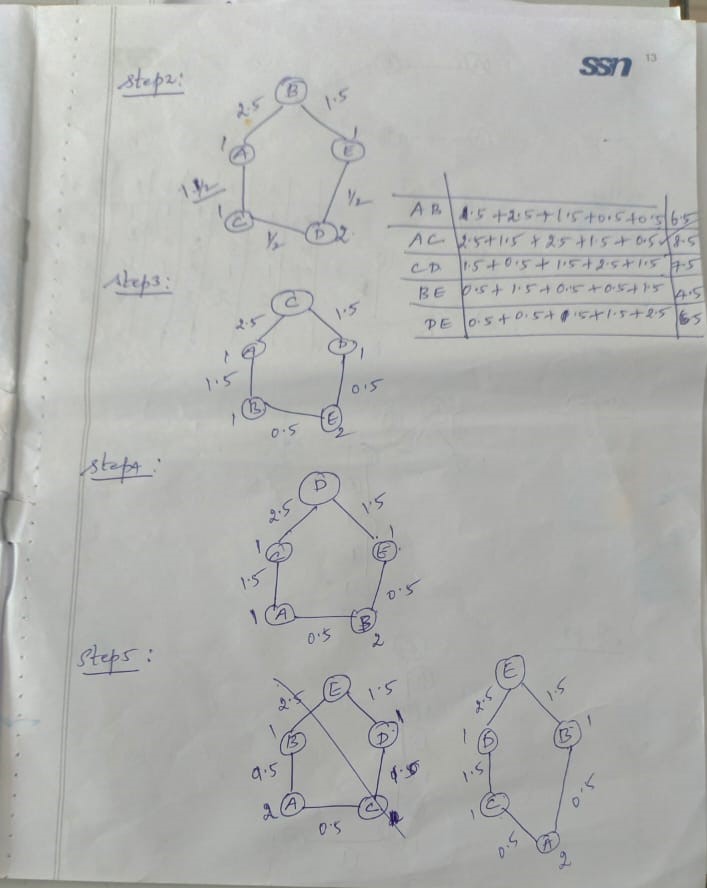 ssn 13
Step2:
B
2.5 1.5
1 1
A E
1 1/2 1/2
1
C D 2
1/2
AB 1.5+2.5+1.5+0.5+0.5 6.5
AC 2.5+1.5+2.5+1.5+0.5 8.5
CD 1.5+0.5+1.5+2.5+1.5 7.5
BE 0.5+1.5+0.5+0.5+1.5 4.5
DE 0.5+0.5+0.5+1.5+2.5 5
Step3:
C
2.5 1.5
1 A D 1
1.5 0.5
1 B E 2
0.5
Step4:
D
2.5 1.5
1 1
C E
1.5 0.5
1 A B 2
0.5
Step5:
E
2.5 1.5
1 1
B D
0.5
2 A C
0.5
E
2.5 1.5
1 D B 1
1.5 0.5
1 C
0.5 A 2